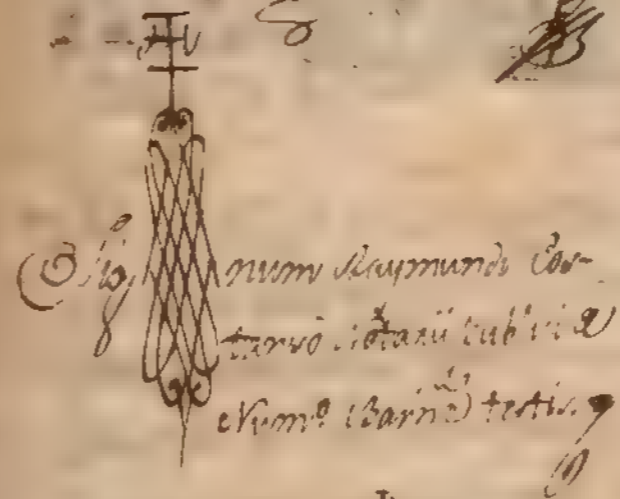 Sig num Raymundi Cos-
taró Notarii Publici
Num.ⁱ Barnᵉ testis.